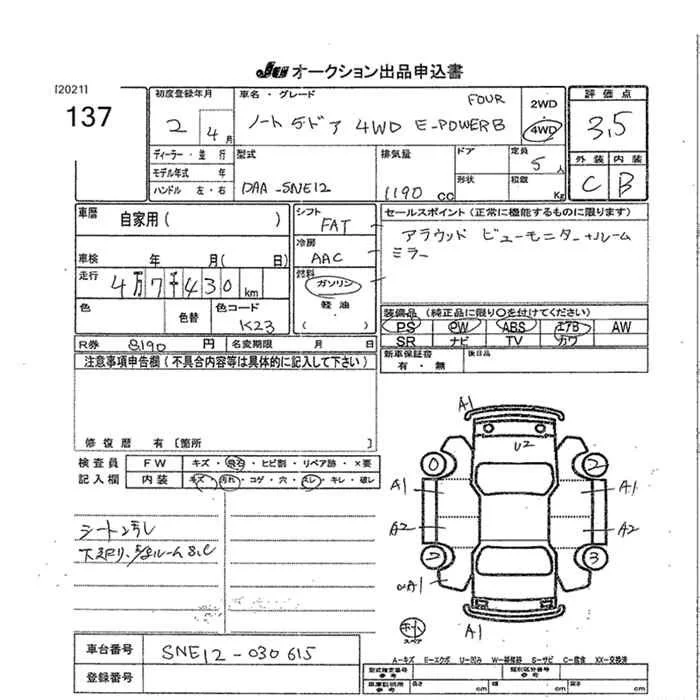 JU オークション出品申込書
[2021]
137
初度登録年月
2 4月
車名・グレード
FOUR
ノート 5ドア 4WD E-POWER B
2WD
4WD
評価点
3,5
ディーラー・並行
モデル年式 年
ハンドル 左・右
型式
DAA-SNE12
排気量
1190 cc
ドア
形状
定員
5人
積載
Kg
外装 内装
C B
車歴
自家用( )
シフト
FAT
セールスポイント(正常に機能するものに限ります)
アラウンド ビューモニター+ルーム
ミラー
冷房
AAC
車検 年 月( 日)
走行
4万7千430km
燃料
ガソリン
軽油
( )
色
色替
色コード
K23
装備品(純正品に限り○を付けてください)
PS PW ABS エアB AW
SR ナビ TV カワ
R券 8190 円
名変期限 月 日
新車保証書
有・無
後日品
注意事項申告欄(不具合内容等は具体的に記入して下さい)
修復歴 有[箇所 ]
検査員
記入欄
FW キズ・飛石・ヒビ割・リペア跡・×要
内装 キズ・汚れ・コゲ・穴・スレ・キレ・破レ
シート汚レ
A1
U2
A1
A1
A2
A2
A1
A1
ホート
スペア
車台番号
SNE12-030615
登録番号
A－キズ E－エクボ U－凹み W－補修跡 S－サビ C－腐食 XX－交換済
型式指定番号
類別区分番号
長さ cm 幅 cm 高さ cm